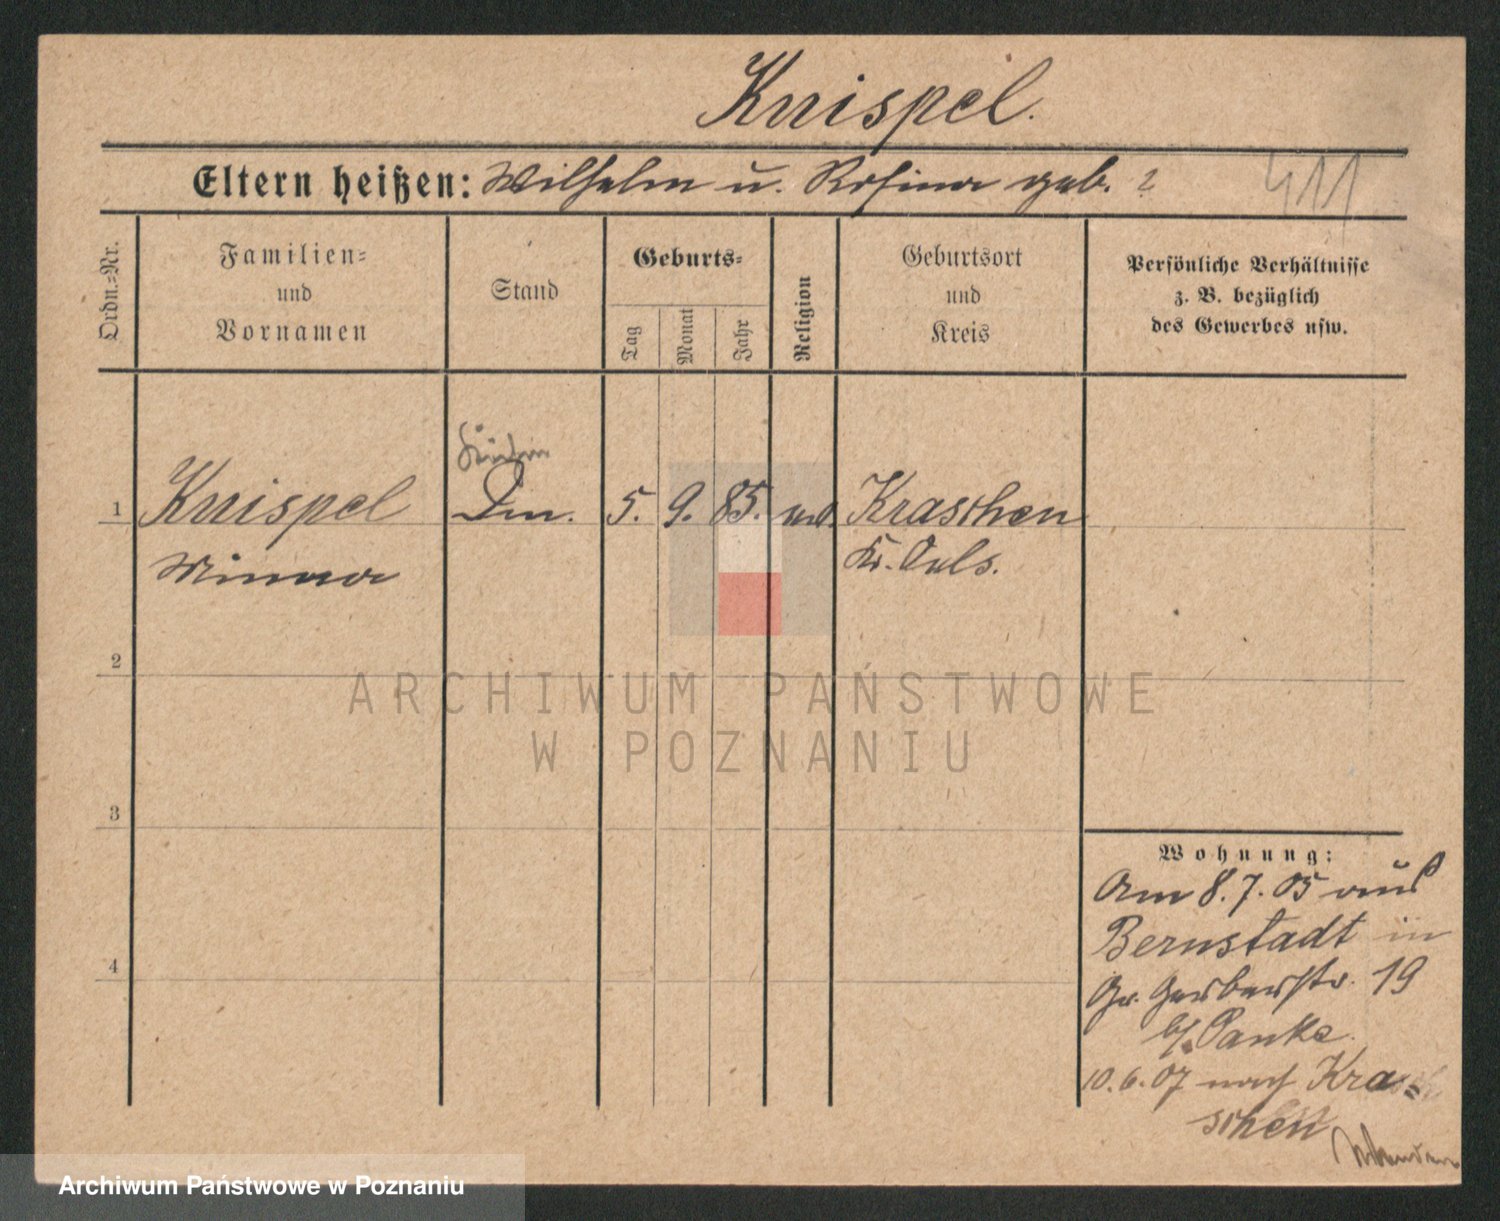 Knispel.
Eltern heißen: Wilhelm u. Rosina geb. ?
411
Ordn.=Nr.
Familien=
und
Vornamen
Stand
Geburts=
Tag
Monat
Jahr
Religion
Geburtsort
und
Kreis
Persönliche Verhältnisse
z. B. bezüglich
des Gewerbes usw.
1 Knispel 5. 9. 85. Kraschen
Minna Kr. Oels.
2
3
4
Wohnung:
Am 8. 7. 05 aus
Bernstadt in
Gr. Gerberstr. 19
b/ Panke.
10. 6. 07 nach Kra=
schen
ARCHIWUM PAŃSTWOWE
W POZNANIU
Archiwum Państwowe w Poznaniu